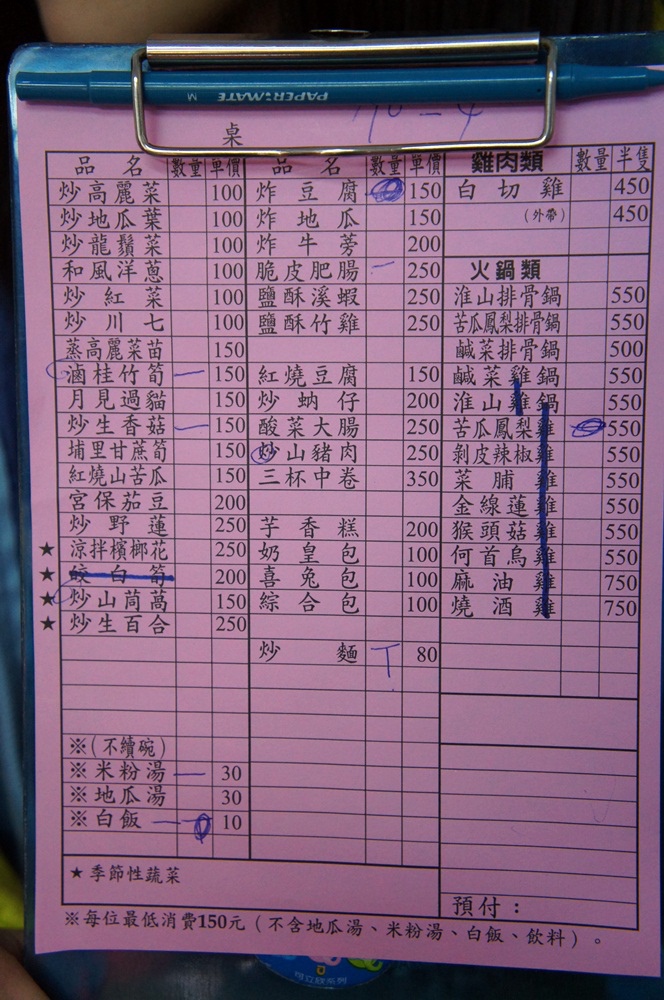 PAPER:MATE M
桌
品名 數量 單價
炒高麗菜 100
炒地瓜葉 100
炒龍鬚菜 100
和風洋蔥 100
炒紅菜 100
炒川七 100
蒸高麗菜苗 150
滷桂竹筍 一 150
月見過貓 150
炒生香菇 一 150
埔里甘蔗筍 150
紅燒山苦瓜 150
宮保茄豆 200
炒野蓮 250
★ 涼拌檳榔花 250
★ 餃白筍 200
★ 炒山茼萵 150
★ 炒生百合 250
※(不續碗)
※米粉湯 一 30
※地瓜湯 30
※白飯 一 10
★季節性蔬菜
品名 數量 單價
炸豆腐 150
炸地瓜 150
炸牛蒡 200
脆皮肥腸 一 250
鹽酥溪蝦 250
鹽酥竹雞 250
紅燒豆腐 150
炒蚋仔 200
酸菜大腸 250
炒山豬肉 250
三杯中卷 350
芋香糕 200
奶皇包 100
喜兔包 100
綜合包 100
炒麵 T 80
雞肉類 數量 半隻
白切雞 450
(外帶) 450
火鍋類
淮山排骨鍋 550
苦瓜鳳梨排骨鍋 550
鹹菜排骨鍋 500
鹹菜雞鍋 550
淮山雞鍋 550
苦瓜鳳梨雞 550
剝皮辣椒雞 550
菜脯雞 550
金線蓮雞 550
猴頭菇雞 550
何首烏雞 550
麻油雞 750
燒酒雞 750
預付：
※每位最低消費150元（不含地瓜湯、米粉湯、白飯、飲料）。